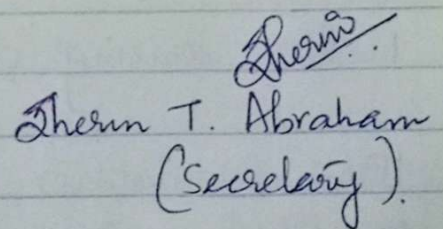 Jherin
Jherin T. Abraham
(Secretary).